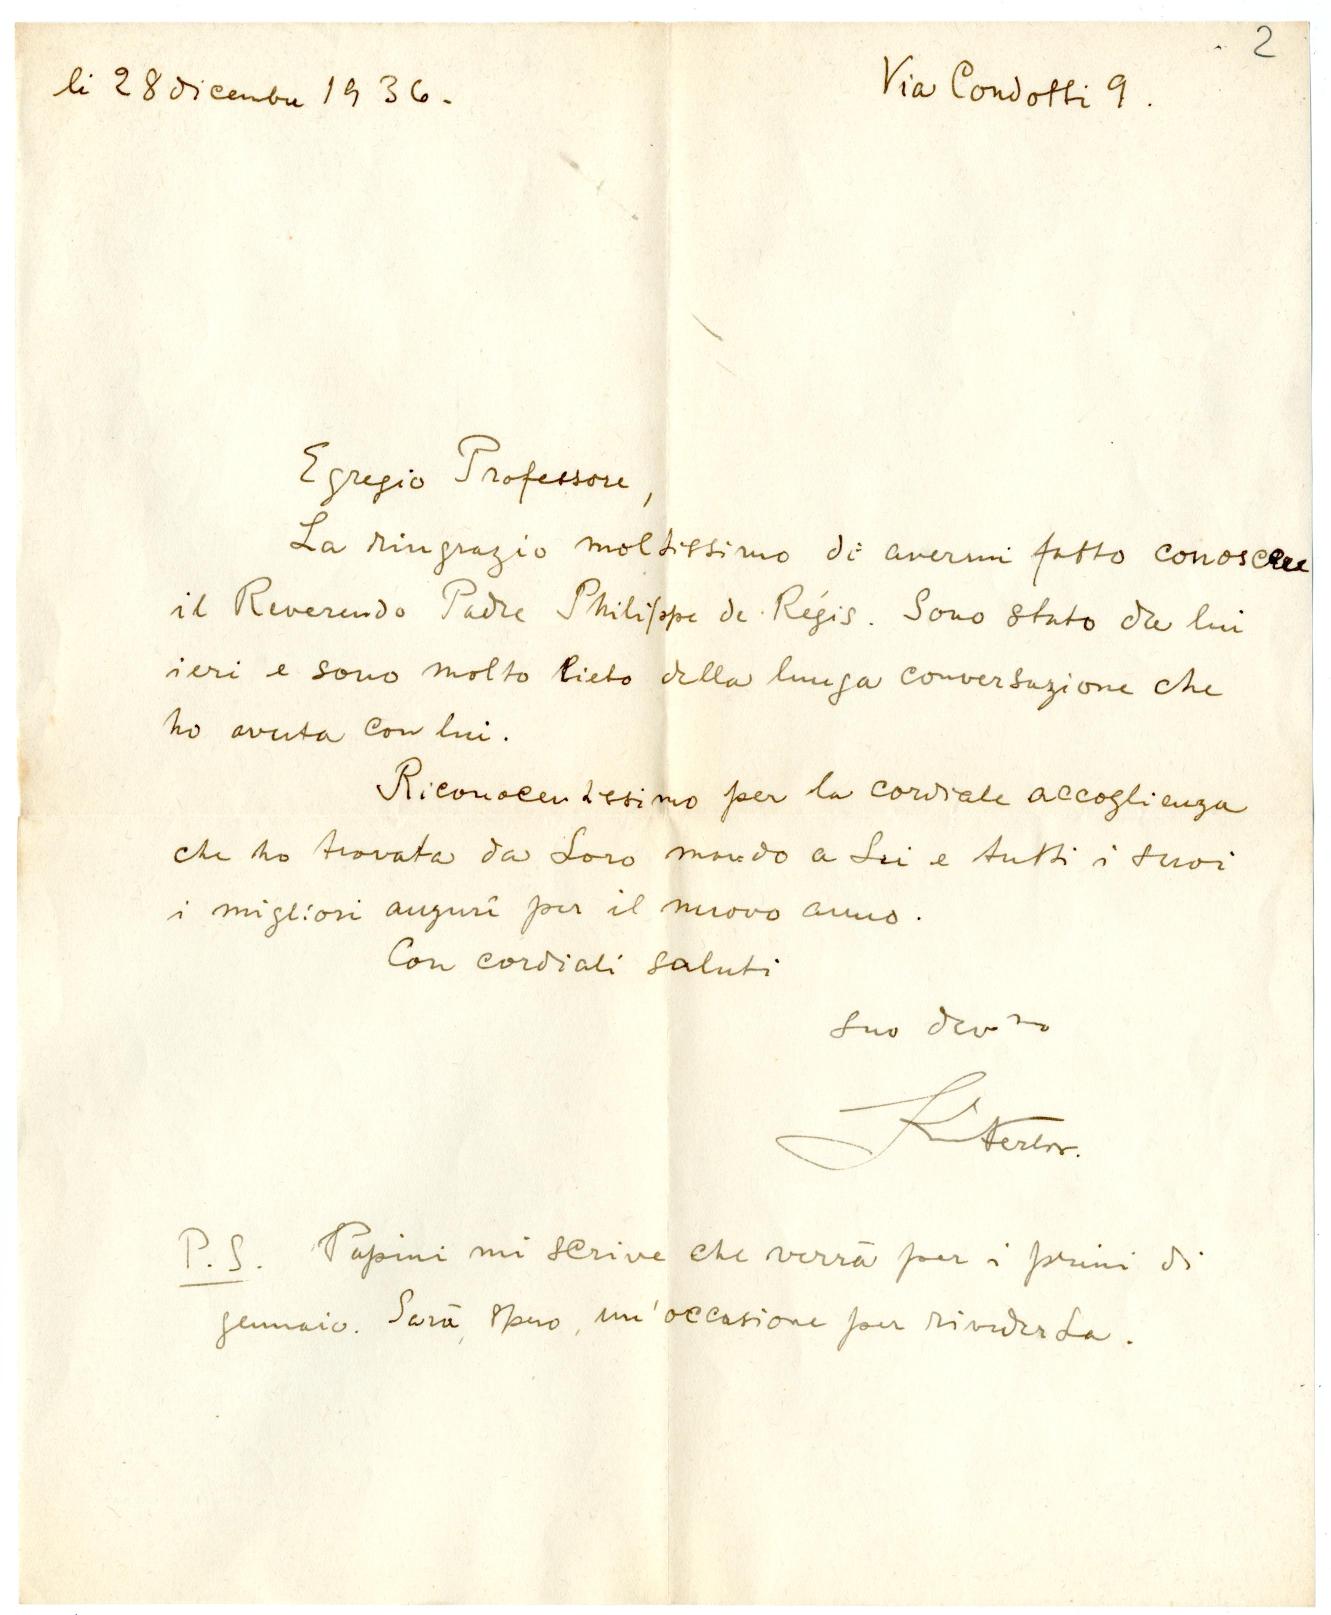 2
li 28 dicembre 1936.
Via Condotti 9.
Egregio Professore,
La ringrazio moltissimo di avermi fatto conoscere
il Reverendo Padre Philippe de Régis. Sono stato da lui
ieri e sono molto lieto della lunga conversazione che
ho avuta con lui.
Riconocentissimo per la cordiale accoglienza
che ho trovata da Loro mando a Lei e tutti i suoi
i migliori auguri per il nuovo anno.
Con cordiali saluti
suo dev mo
P.S. Papini mi scrive che verrà per i primi di
gennaio. Sarà, spero, un'occasione per riveder La.